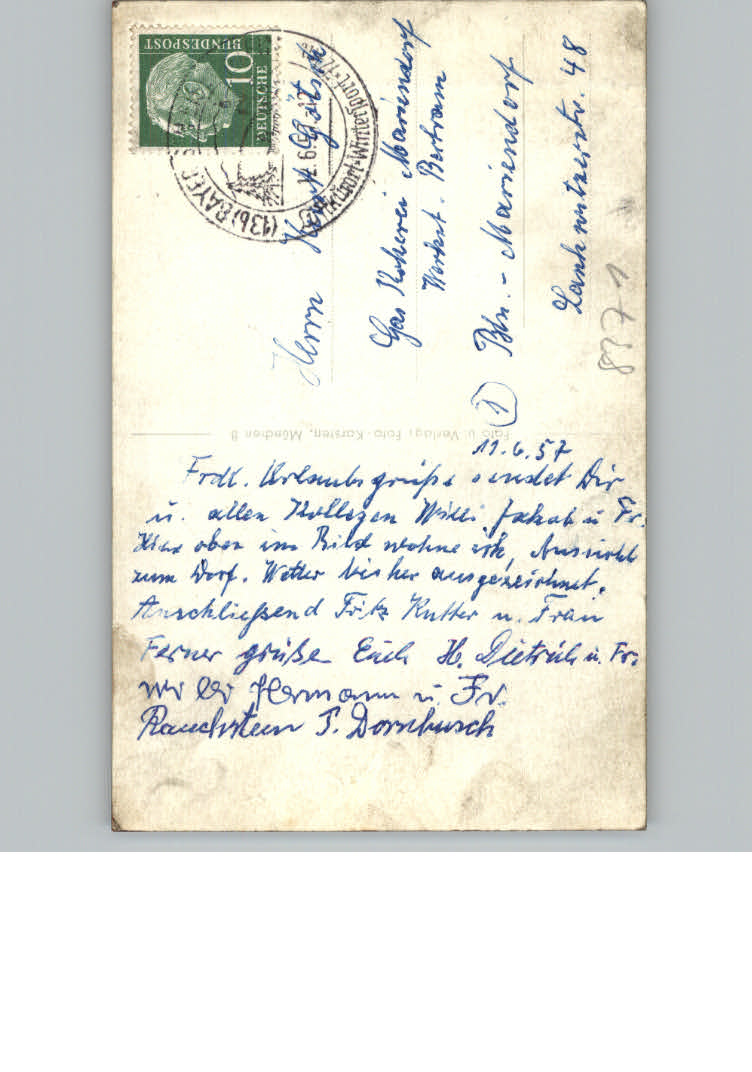 DEUTSCHE
BUNDESPOST
10
(13b) BAYE
Herrn Götsch
Gas Kokerei Mariendorf
Werkst. Bertram
① Bln.-Mariendorf
Lankwitzerstr. 48
8271
Foto u. Verlag, Foto-Karsten, München 8
11.6.57
Frdl. Urlaubsgrüße sendet Dir
u. allen Kollegen Willi Jakob u Fr.
Hier oben im Bild wohne ich, Aussicht
zum Dorf. Wetter bisher ausgezeichnet.
Anschließend Fritz Kutter u. Frau
Ferner grüßen Euch H. Dietrich u. Fr.
Hermann u. Fr.
Rauchstein F. Dornbusch